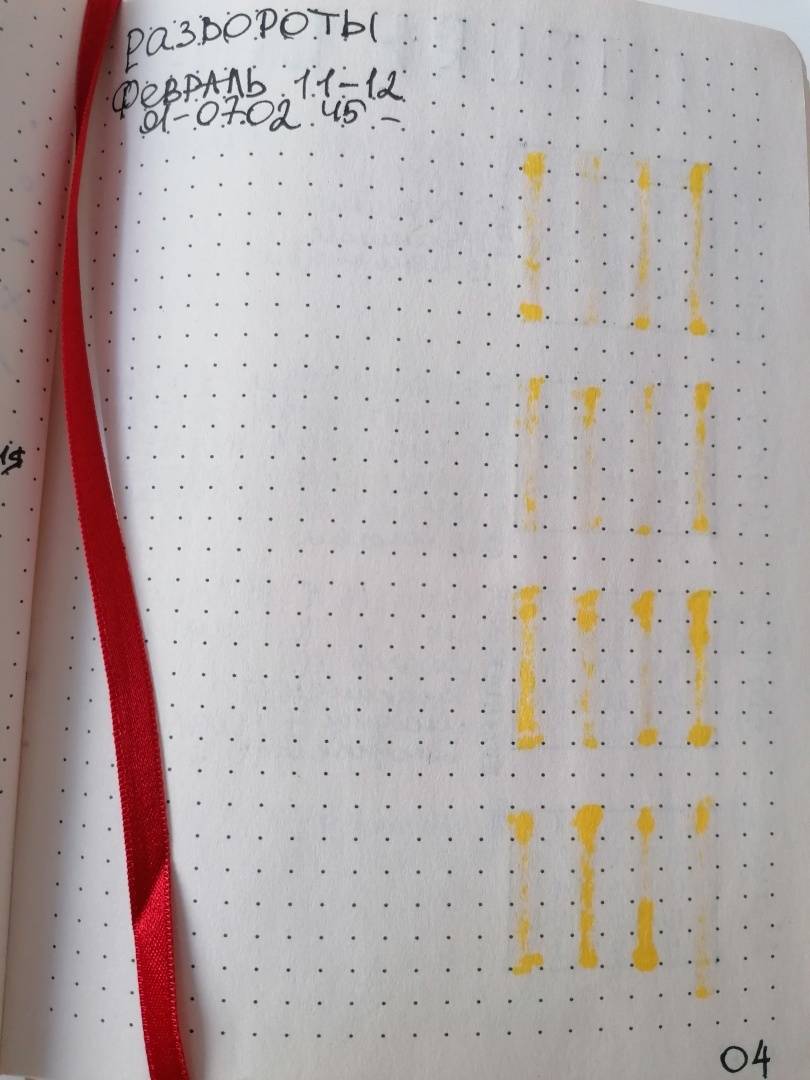 РАЗВОРОТЫ
ФЕВРАЛЬ 11-12
01-07.02 45 -
04